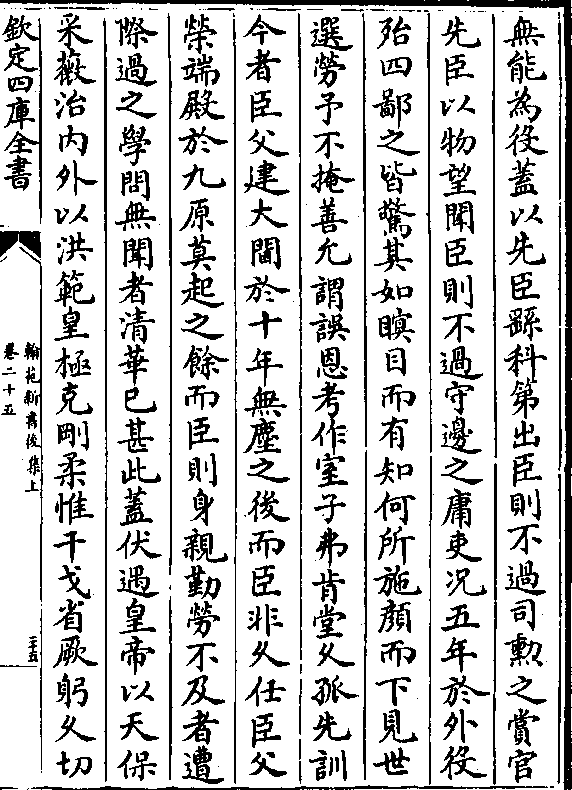 無能為役蓋以先臣繇科第出臣則不過司勲之賞官
先臣以物望聞臣則不過守邊之庸吏况五年於外役
殆四鄙之皆驚其如瞑目而有知何所施顔而下見世
選勞予不掩善允謂誤恩考作室子弗肯堂久孤先訓
今者臣父建大閫於十年無塵之後而臣非久任臣父
榮端殿於九原莫起之餘而臣則身親勤勞不及者遭
際過之學問無聞者清華已甚此蓋伏遇皇帝以天保
采薇治内外以洪範皇極克剛柔惟干戈省厥躬久切
欽定四庫全書
翰苑新書後集上
卷二十五
二十五